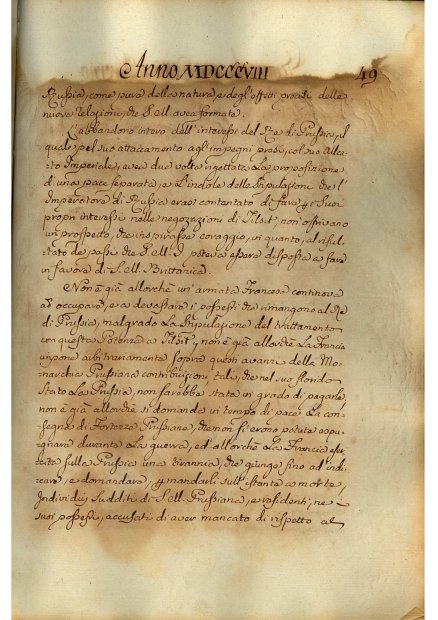 Anno MDCCCVIII 49
Russia, come pure della natura, e degl'effetti precisi delle
nuove relazioni, che S. M. avea formate.
L'abbandono intero dell'interessi del Re di Prussia, il
quale pel suo attaccamento agli impegni presi, col suo Allea-
to Imperiale, avea due volte rigettata la proposizione
d'una pace separata, e l'indole delle stipulazione che l'
Imperatore di Russia erasi contentato di fare pi Suoi
propri interessi nelle negoziazioni di Tilsit, non offrivano
un prospetto, che inspirasse coraggio, in quanto, al risul-
tato de passi che S. M. I. poteva essere disposta a fare
in favore di S. M. Brittanica.
Non è già allorchè un'armata Francese continova
ad occupare, e a devastare i possessi che rimangono al Re
di Prussia, malgrado la stipulazione del trattamento
con questa Potenza a Tilsit, non è già allorchè la Francia
impone arbitrariamente sopra questi avanzi della Mo-
narchia Prussiana contribuzioni tali, che nel suo florido
Stato la Prussia, non sarebbe stata in grado di pagarle,
non è già allorchè si domanda in tempo di pace la con-
segna di Fortezze Prussiane, che non si erono potute espu-
gnare durante la guerra, ed'allorchè la Francia eser-
cita sulla Prussia una tirannia, che giunge sino ad indi-
care, e domandare, p mandarli sull'istante a morte,
Individui Sudditi di S. M. Prussiana, e residenti, ne
suoi possessi, accusati di aver mancato di rispetto al